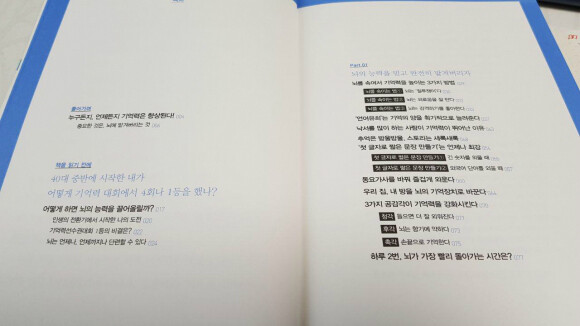 들어가며
누구든지, 언제든지 기억력은 향상된다!
중요한 것은, 뇌에 맡겨버리는 것
책을 읽기 전에
40대 중반에 시작한 내가
어떻게 기억력 대회에서 4회나 1등을 했나?
어떻게 하면 뇌의 능력을 끌어올릴까? 017
인생의 전환기에서 시작한 나의 도전 020
기억력선수권대회 1등의 비결은? 022
뇌는 언제나, 언제까지나 단련할 수 있다 024
Part.01
뇌의 능력을 믿고 완전히 맡겨버리자
뇌를 속여서 기억력을 높이는 3가지 방법
뇌를 속이는 법1 뇌는
뇌를 속이는 법2 뇌는
뇌를 속이는 법3 뇌는
'언어유희'는 기억의 양을 획기적으로 늘려준다
낙서를 많이 하는 사람이 기억력이 뛰어난 이유
추억은 방울방울, 스토리는 새록새록
'첫 글자로 짧은 문장 만들기'는 언제나 최강
첫 글자로 짧은 문장 만들기1 긴 숫자를 외울 때
첫 글자로 짧은 문장 만들기2 외국어 단어를 외울 때
동요가사를 바꿔 즐겁게 외운다
우리 집, 내 방을 뇌의 기억장치로 바꾼다
3가지 공감각이 기억력을 강화시킨다
청각 들으면 더 잘 외워진다
후각 뇌는 향기에 약하다
촉각 손끝으로 기억한다 075
하루 2번, 뇌가 가장 빨리 돌아가는 시간은? 077